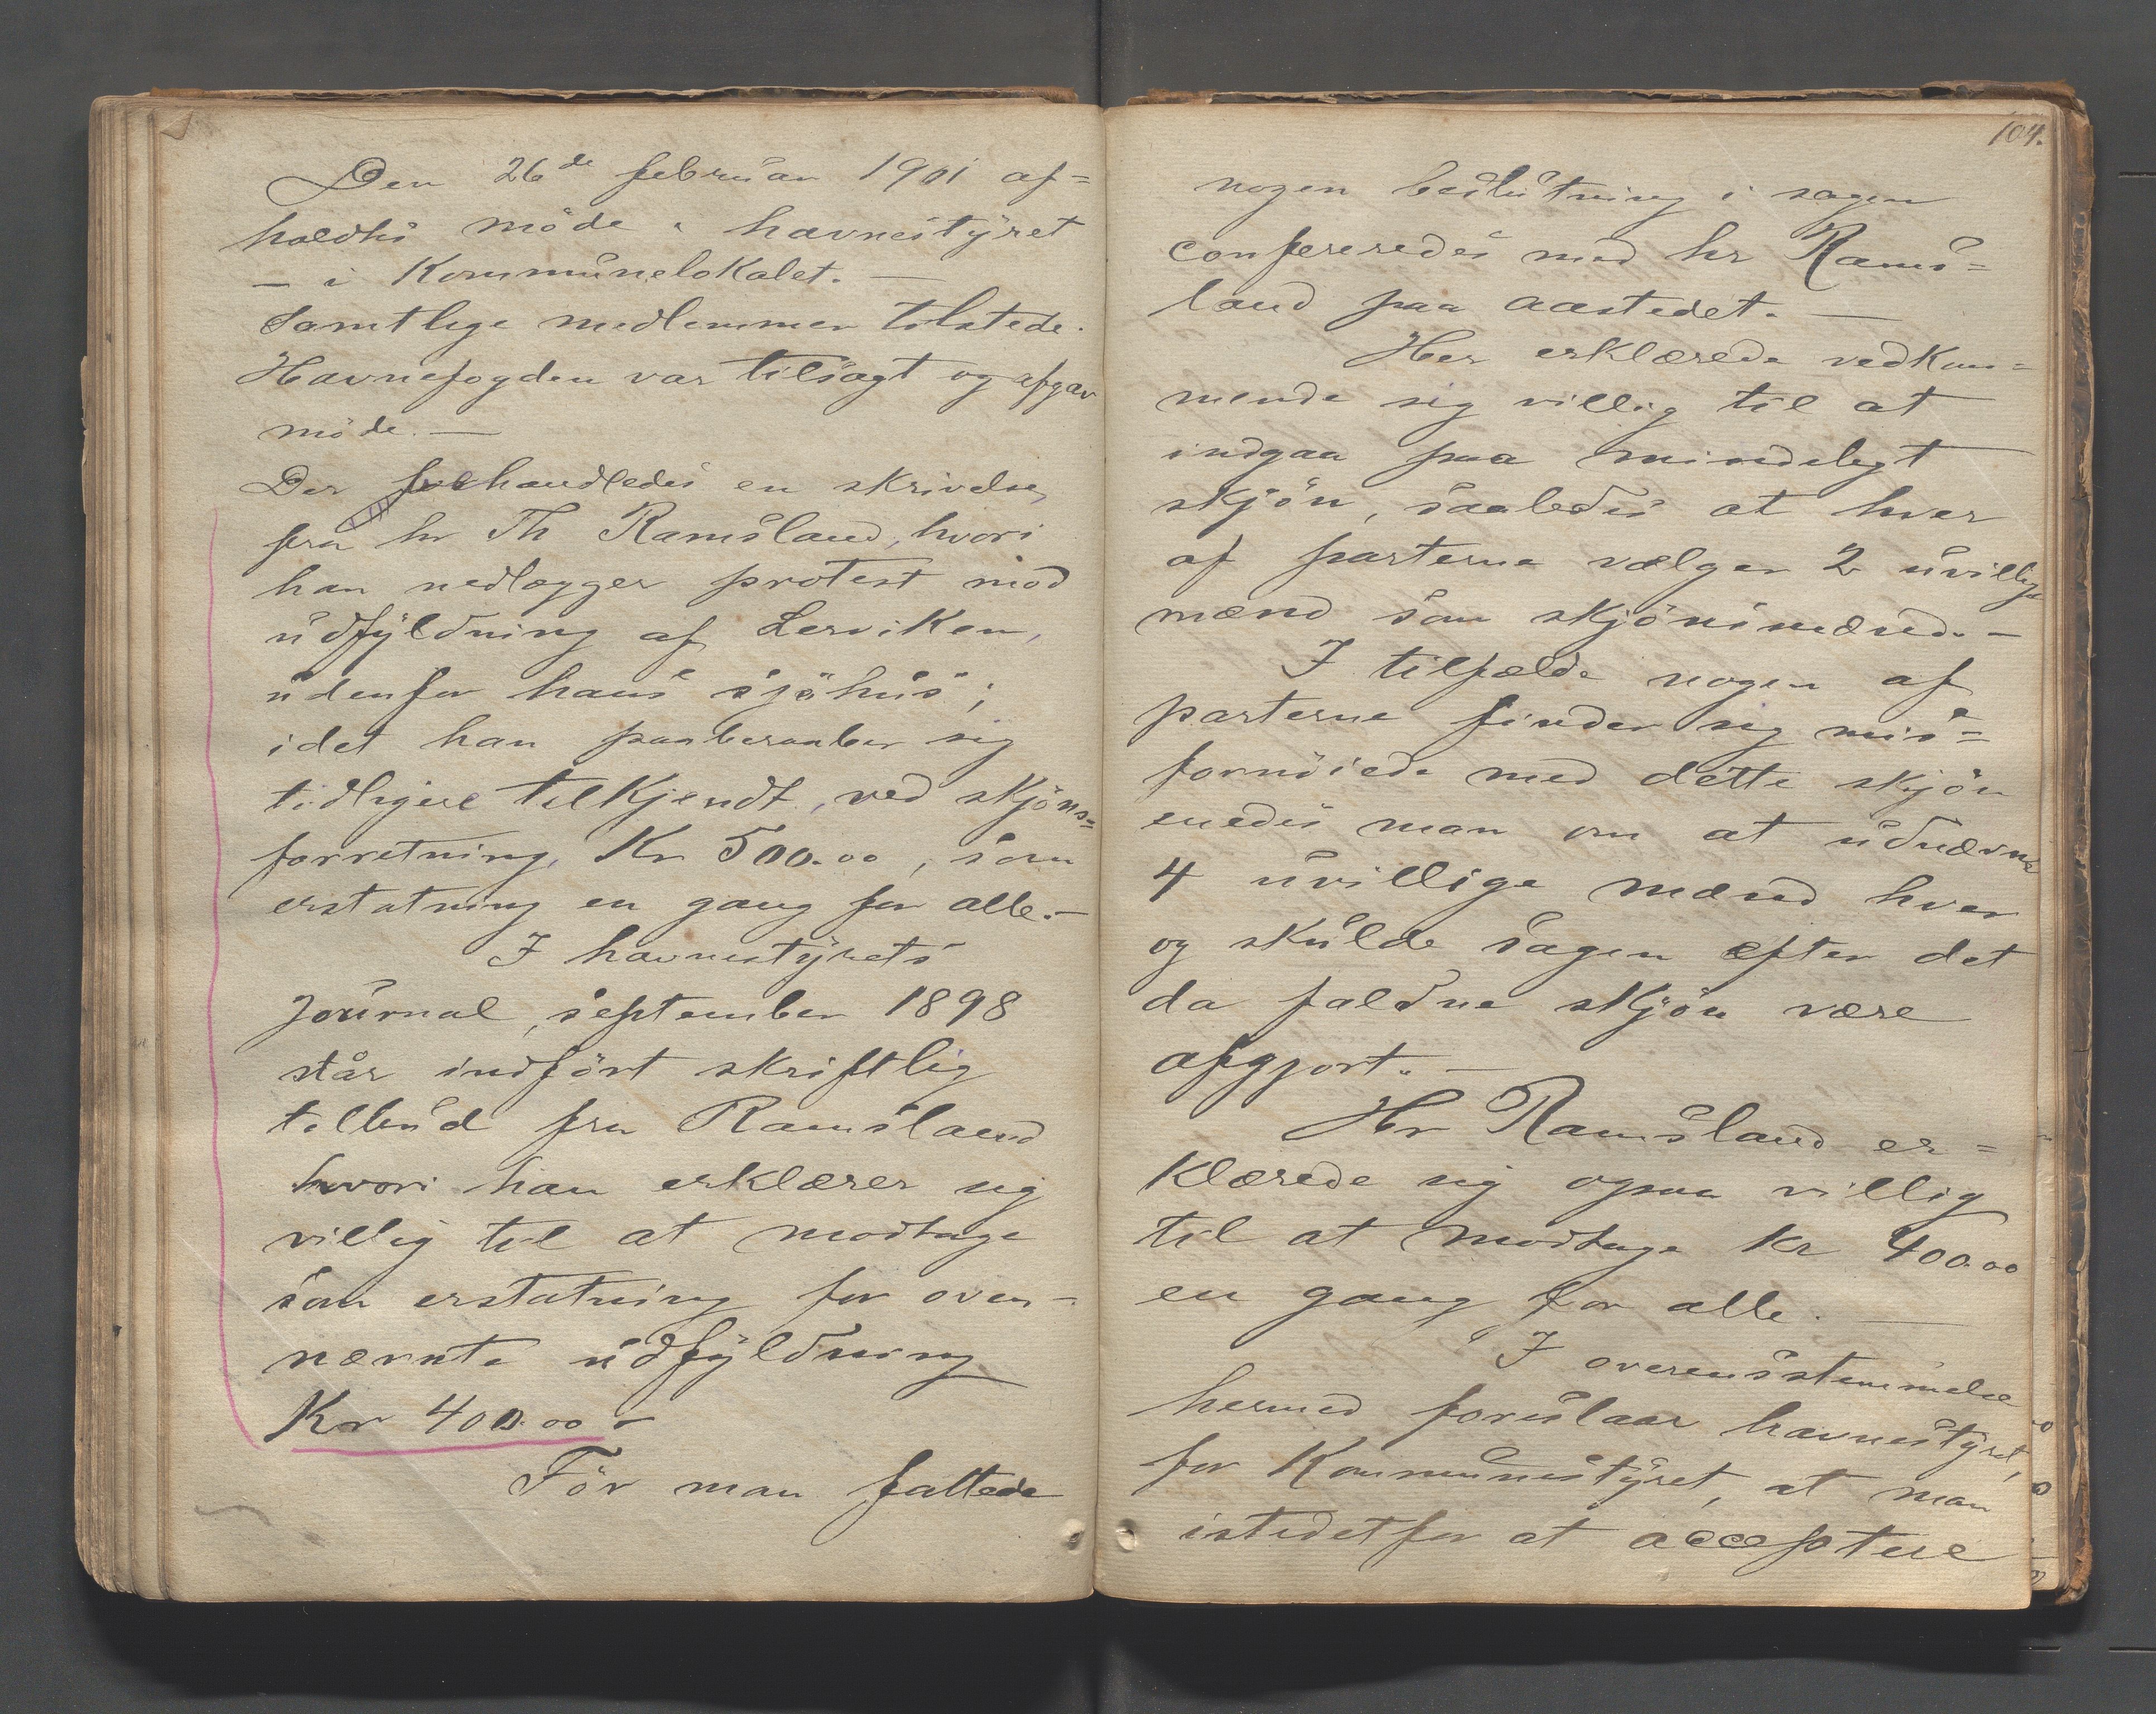 Den 26de februar 1901 af=
holdtes möde i havnestyret
– i Kommunelokalet. –
Samtlige medlemmer tilstede.
Havnefogden var tilsagt og afgav
möde. –
Der forhandledes en skrivelse,
fra hr Th Ramsland, hvori
han nedlægger protest mod
udfyldning af Lerviken,
udenfor hans sjöhus;
idet han paaberaaber sig
tidligere tilkjendt, ved skjöns=
forretning, Kr 500.00, som
erstatning en gang for alle. –
I havnestyrets
Journal, september 1898
står indfört skriftlig
tilbud fra Ramsland
hvori han erklærer sig
villig til at modtage
som erstatning for oven-
nævnte udfyldning
Kr 400.00 –
För man fattede
104.
nogen beslutning i sagen
confereredes med hr Rams=
land paa aastedet. –
Her erklærede vedkom=
mende sig villig til at
indgaa paa mindeligt
skjön, saaledes at hver
af parterne vælger 2 uvillige
mænd som skjönsmænd. –
I tilfælde nogen af
parterne finder sig mis=
fornöiede med dette skjön
enedes man om at udnævne
4 uvillige mænd hver
og skulde sagen efter det
da faldne skjön være
afgjort. –
Hr Ramsland er=
klærede sig ogsaa villig
til at modtage kr 400.00
en gang for alle. –
I overensstemmelse
hermed foreslaar havnestyret,
for Kommunestyret, at man
istedetfor at acceptere